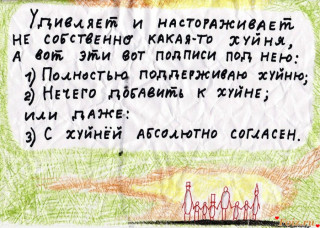 Удивляет и настораживает
не собственно какая-то хуйня,
а вот эти вот подписи под нею:
1) Полностью поддерживаю хуйню;
2) Нечего добавить к хуйне;
или даже:
3) С хуйнёй абсолютно согласен.